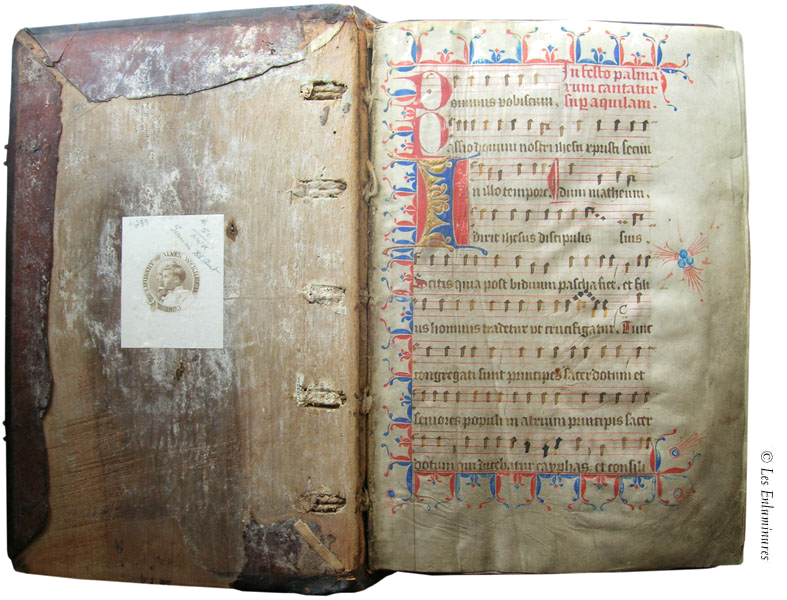 In festo palma
rum cantatur
sup aquilam.
Dominus vobiscum.
Passio domini nostri ihesu xpisti secun
In illo tempore. dum matheum.
dixit ihesus discipulis suis
Scitis quia post biduum pascha fiet, et fili
us hominis tradetur ut crucifigatur. Tunc
congregati sunt principes sacerdotum et
seniores populi in atrium principis sacer
dotum qui dicebatur cayphas. et consili
© Les Enluminures